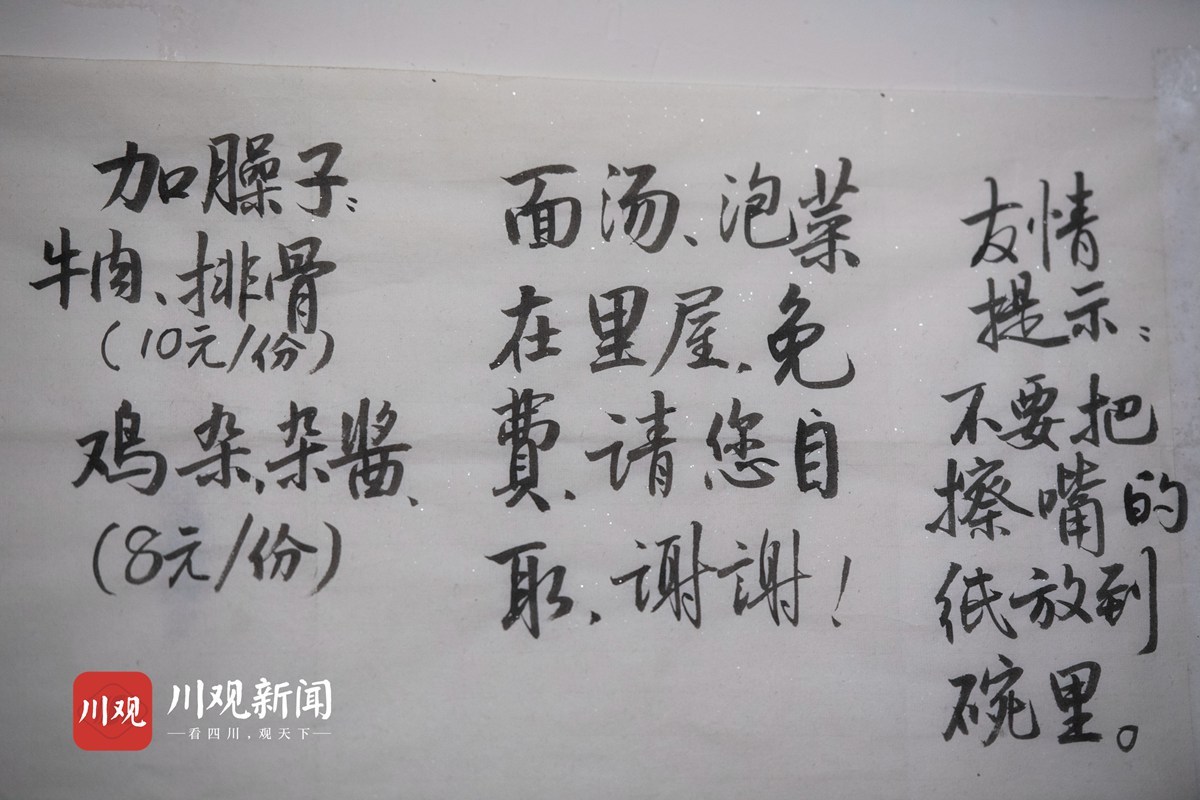 加臊子：
牛肉、排骨
（10元/份）
鸡杂，杂醬、
（8元/份）
面汤、泡菜
在里屋、免
費、请您自
取、谢謝！
友情
提示：
不要把
擦嘴的
纸放到
碗里。
川观
川观新闻
—看四川，观天下—